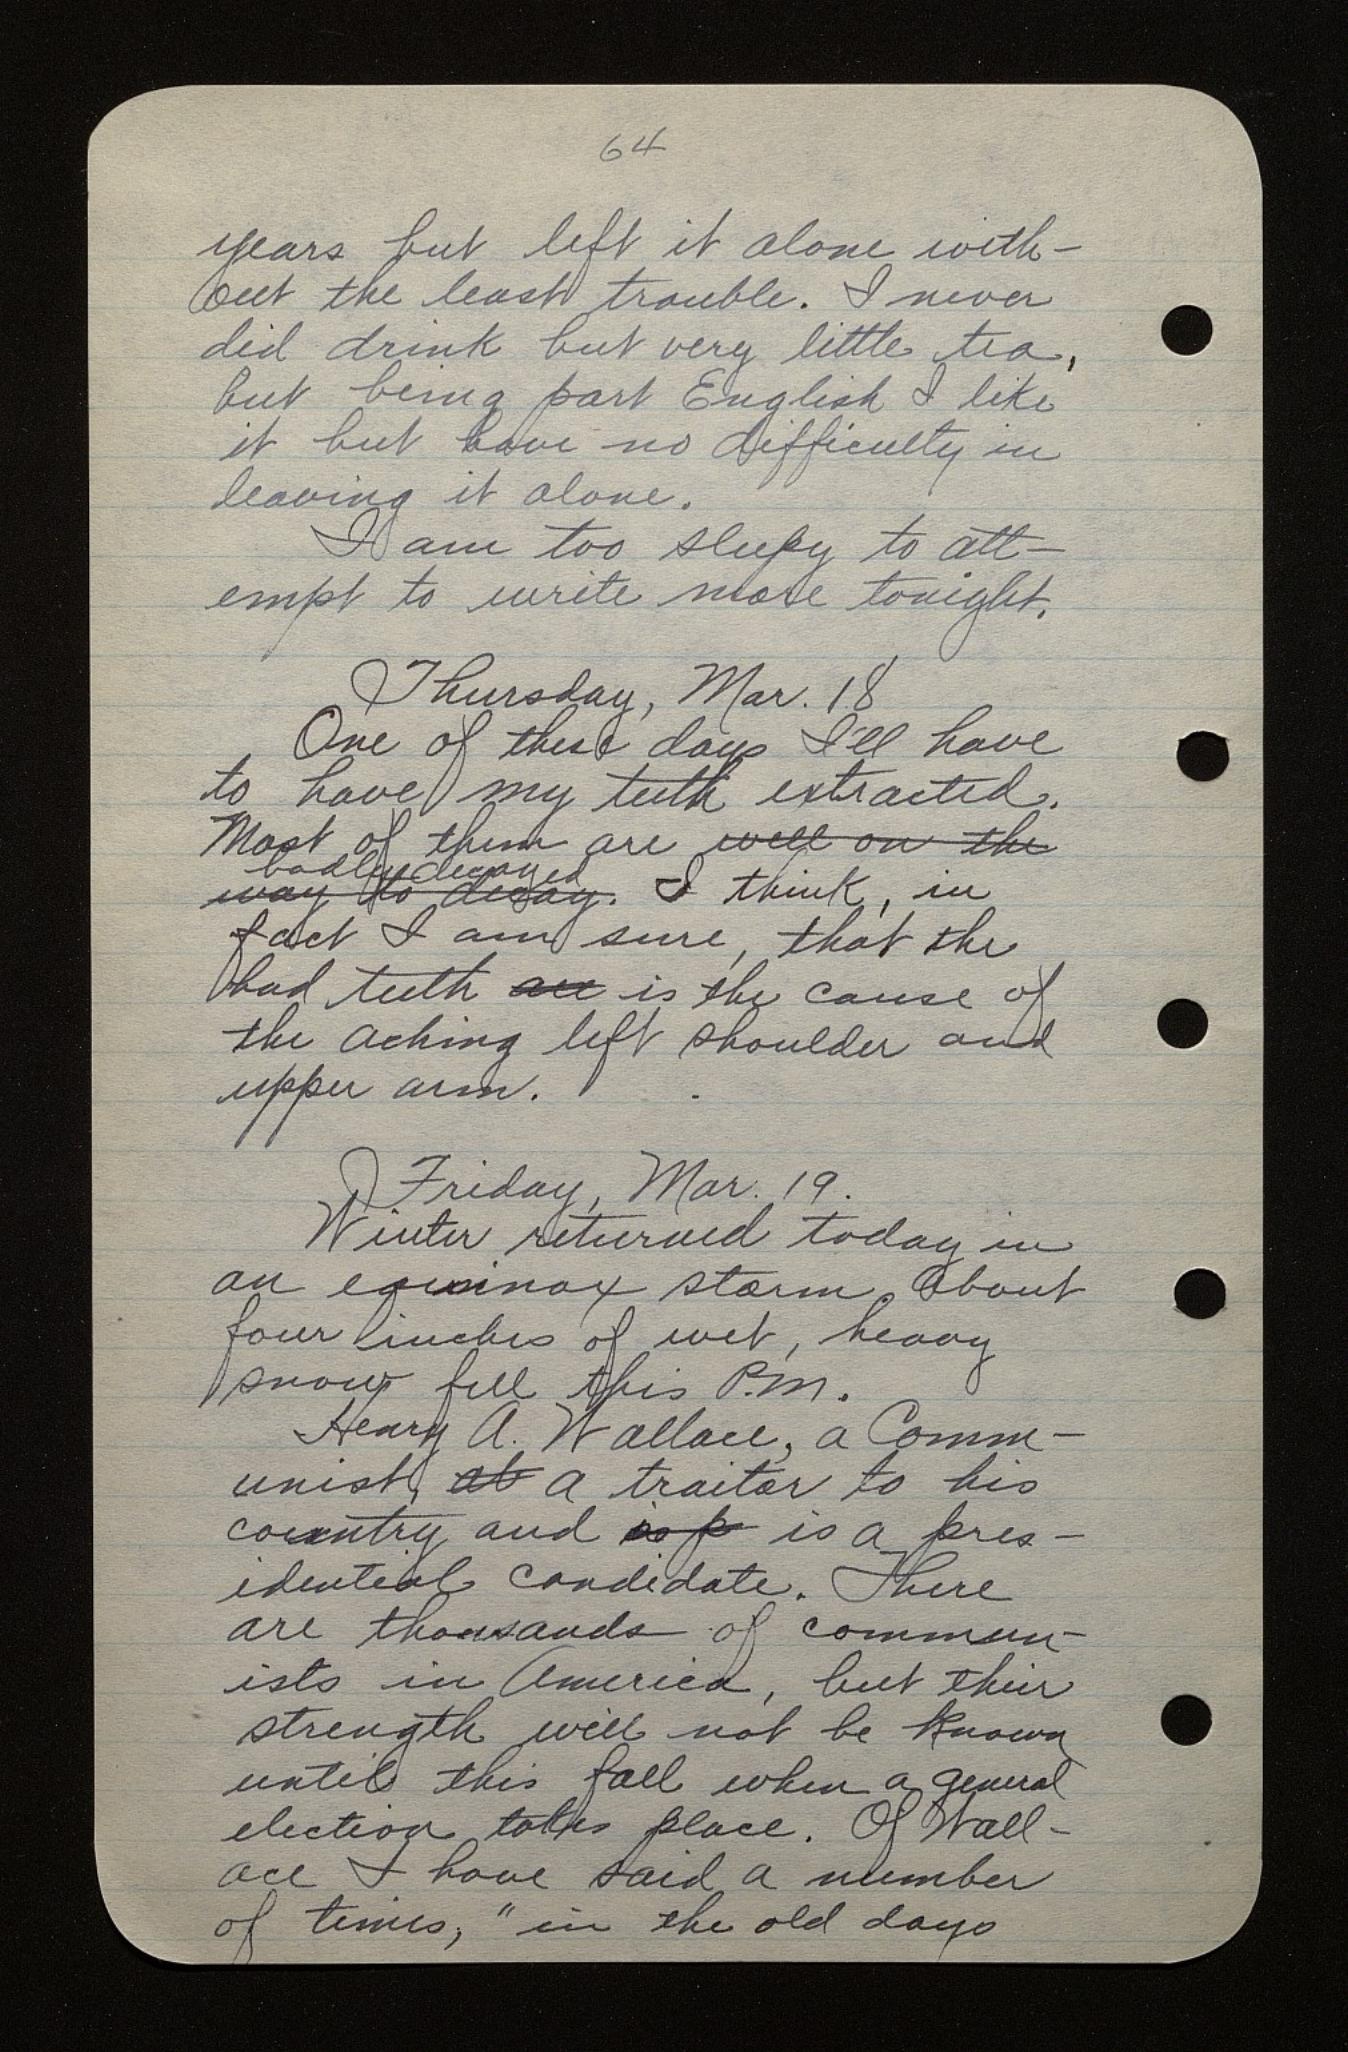 64
years but left it alone with-
out the least trouble. I never
did drink but very little tea,
but being part English I like
it but have no difficulty in
leaving it alone.
I am too sleepy to att-
empt to write more tonight.
Thursday, Mar. 18
One of these days I'll have
to have my teeth extracted.
Most of them are well on the
badly decayed
way to decay. I think, in
fact I am sure, that the
bad teeth are is the cause of
the aching left shoulder and
upper arm.
Friday, Mar. 19.
Winter returned today in
an equinox storm. About
four inches of wet, heavy
snow fell this P.M.
Henry A. Wallace, a Comm-
unist, at a traitor to his
country and is p is a pres-
idential candidate. There
are thousands of commun-
ists in America, but their
strength will not be known
until this fall when a general
election takes place. Of Wall-
ace I have said a number
of times, "in the old days